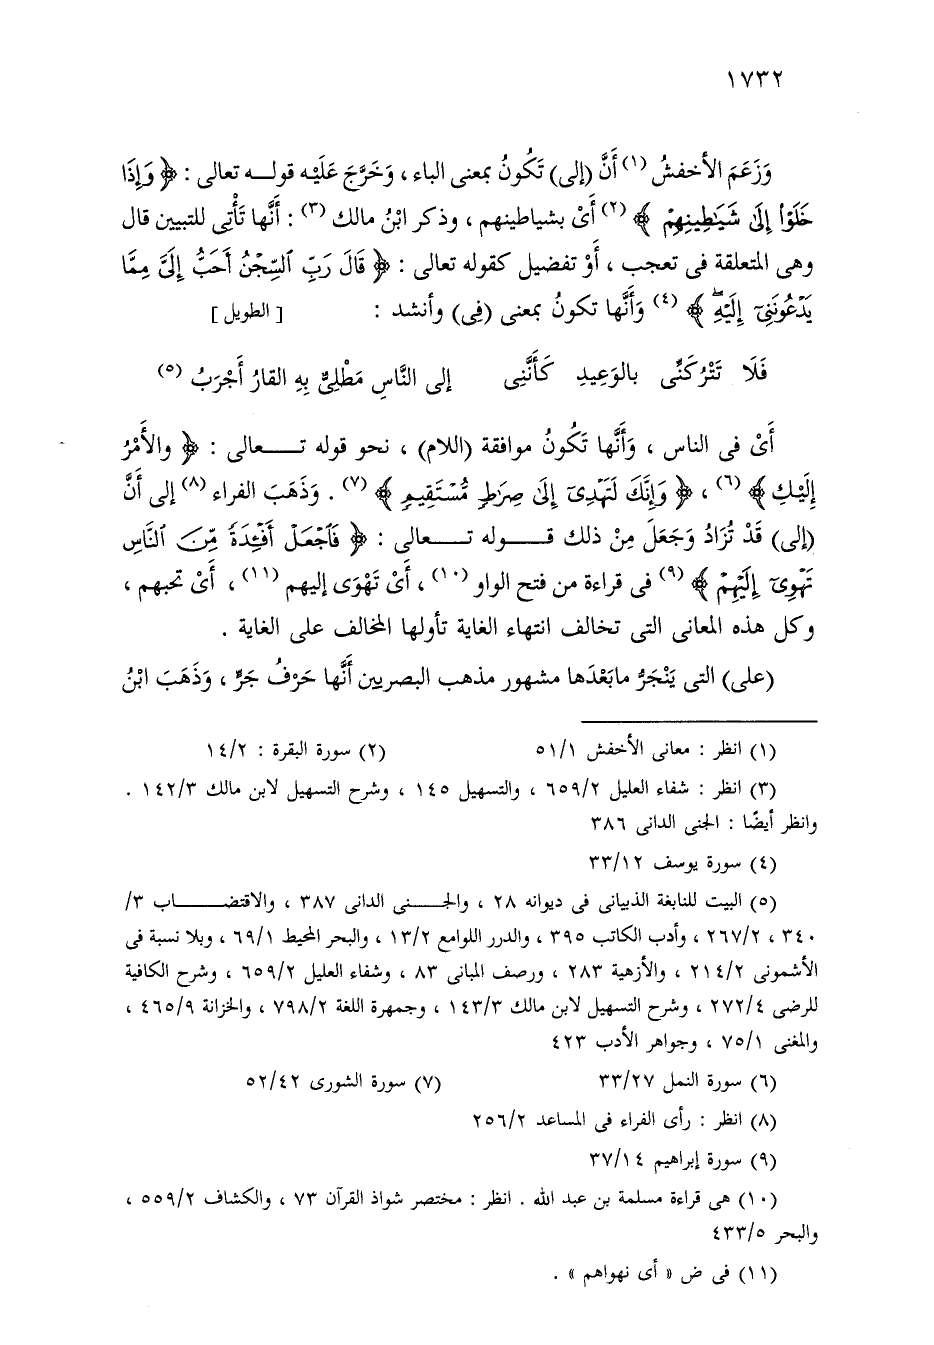 ١٧٣٢
وَزَعَمَ الأخفشُ (١) أَنَّ (إلى) تَكُونُ بمعنى الباء ، وَخَرَّجَ عَلَيْه قولــه تعالى : ﴿ وَإِذَا
خَلَوْا۟ إِلَىٰ شَيَـٰطِينِهِمْ ﴾ (٢) أَىْ بشياطينهم ، وذكر ابْنُ مالك (٣) : أَنَّها تَأْتِى للتبيين قال
وهى المتعلقة فى تعجب ، أَوْ تفضيل كقوله تعالى : ﴿ قَالَ رَبِّ ٱلسِّجْنُ أَحَبُّ إِلَىَّ مِمَّا
يَدْعُونَنِىٓ إِلَيْهِ ۖ ﴾ (٤) وَأَنَّها تكونُ بمعنى (فِى) وأنشد : [ الطويل ]
فَلَا تَتْرُكَنِّى بالوَعِيدِ كَأَنَّنِى إلى النَّاسِ مَطْلِىٌّ بِهِ القارُ أَجْرَبُ (٥)
أَىْ فى الناس ، وَأَنَّها تَكُونُ موافقة (اللام) ، نحو قوله تـــعالى : ﴿ والأَمْرُ
إِلَيْكِ ﴾ (٦) ، ﴿ وَإِنَّكَ لَتَهْدِىٓ إِلَىٰ صِرَٰطٍ مُّسْتَقِيمٍ ﴾ (٧) . وَذَهَبَ الفراء (٨) إلى أَنَّ
(إلى) قَدْ تُزَادُ وَجَعَلَ مِنْ ذلك قـــوله تـــعالى : ﴿ فَٱجْعَلْ أَفْـِٔدَةً مِّنَ ٱلنَّاسِ
تَهْوِىٓ إِلَيْهِمْ ﴾ (٩) فى قراءة من فتح الواو (١٠) ، أَىْ تَهْوَى إليهم (١١) ، أَىْ تحبهم ،
وكل هذه المعانى التى تخالف انتهاء الغاية تأولها المخالف على الغاية .
(على) التى يَنْجَرُّ مابَعْدَها مشهور مذهب البصريين أَنَّها حَرْفُ جَرٍّ ، وَذَهَبَ ابْنُ
(١) انظر : معانى الأخفش ٥١/١ (٢) سورة البقرة : ١٤/٢
(٣) انظر : شفاء العليل ٦٥٩/٢ ، والتسهيل ١٤٥ ، وشرح التسهيل لابن مالك ١٤٢/٣ .
وانظر أيضًا : الجنى الدانى ٣٨٦
(٤) سورة يوسف ٣٣/١٢
(٥) البيت للنابغة الذبيانى فى ديوانه ٢٨ ، والجـــنى الدانى ٣٨٧ ، والاقتضـــاب ٣/
٣٤٠ ، ٢٦٧/٢ ، وأدب الكاتب ٣٩٥ ، والدرر اللوامع ١٣/٢ ، والبحر المحيط ٦٩/١ ، وبلا نسبة فى
الأشمونى ٢١٤/٢ ، والأزهية ٢٨٣ ، ورصف المبانى ٨٣ ، وشفاء العليل ٦٥٩/٢ ، وشرح الكافية
للرضى ٢٧٢/٤ ، وشرح التسهيل لابن مالك ١٤٣/٣ ، وجمهرة اللغة ٧٩٨/٢ ، والخزانة ٤٦٥/٩ ،
والمغنى ٧٥/١ ، وجواهر الأدب ٤٢٣
(٦) سورة النمل ٣٣/٢٧ (٧) سورة الشورى ٥٢/٤٢
(٨) انظر : رأى الفراء فى المساعد ٢٥٦/٢
(٩) سورة إبراهيم ٣٧/١٤
(١٠) هى قراءة مسلمة بن عبد الله . انظر : مختصر شواذ القرآن ٧٣ ، والكشاف ٥٥٩/٢ ،
والبحر ٤٣٣/٥
(١١) فى ض « أى نهواهم » .